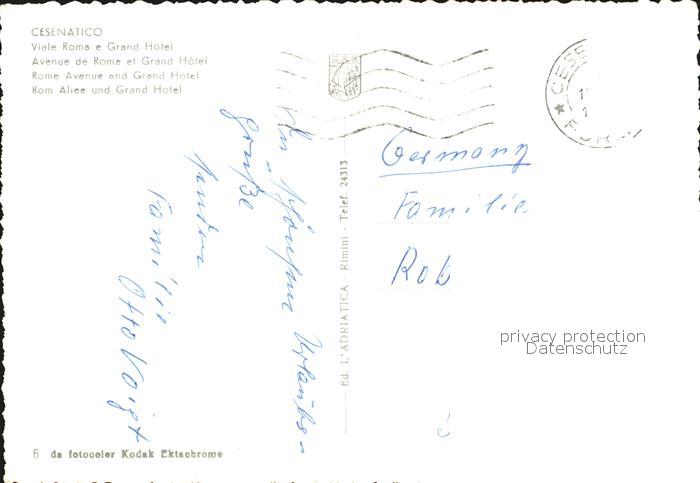 CESENATICO
Viale Roma e Grand Hotel
Avenue de Rome et Grand Hôtel
Rome Avenue and Grand Hotel
Rom Allee und Grand Hotel
Urlaubs-
grüße
senden
Familie
Otto Voigt
Ed. L'ADRIATICA - Rimini - Telef. 24313
Germany
Familie
Rob
privacy protection
Datenschutz
6 da fotocolor Kodak Ektachrome